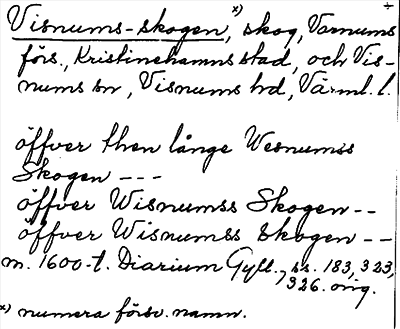 Visnums-skogen, x) skog, Varnums
förs., Kristinehamns stad, och Vis-
nums sn, Visnums hd, Värml. l.
öffver then långe Wesnumss
Skogen ---
öffver Wisnumss Skogen --
öffver Wisnumss Skogen --
m. 1600-t. Diarium Gyll., ss. 183, 323,
326. orig.
x) numera försv. namn.